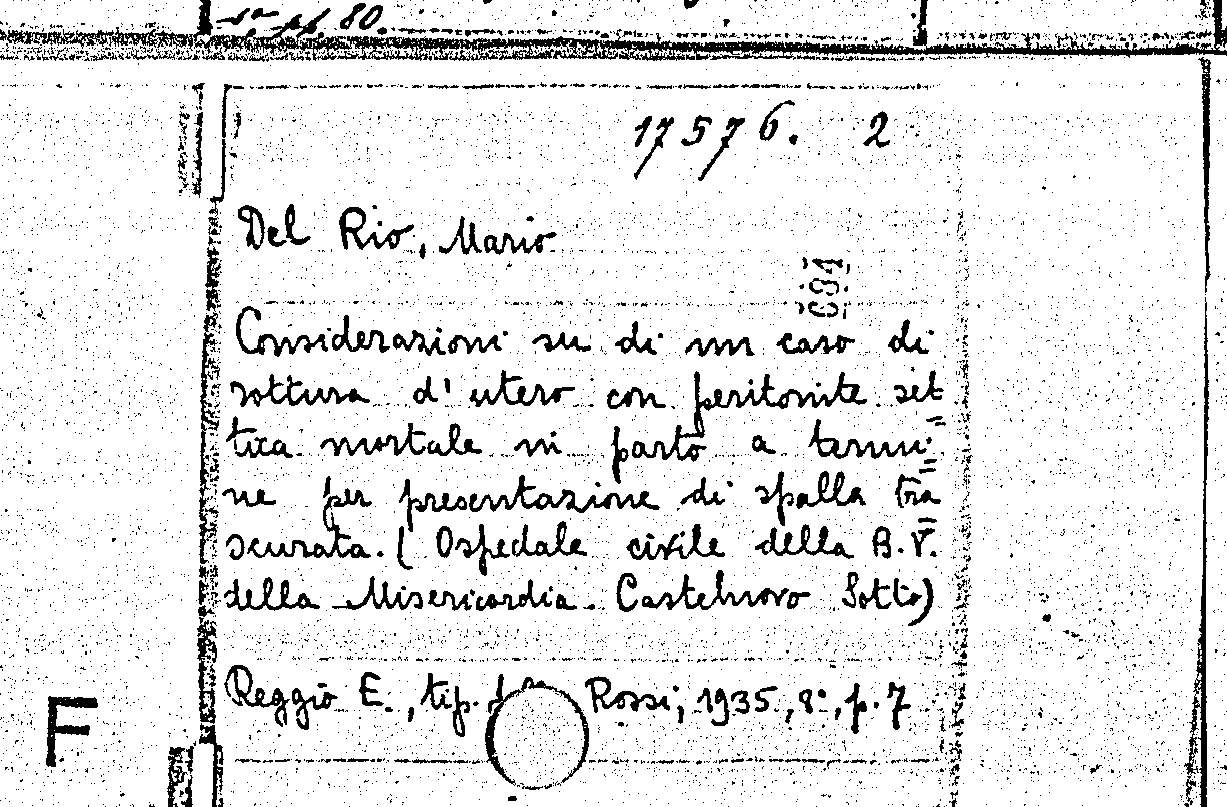 pf. 80.
17576. 2
Del Rio, Mario
684
Considerazioni su di un caso di
rottura d'utero con peritonite set
tica mortale in parto a termi=
ne per presentazione di spalla tra=
scurata. ( Ospedale civile della B.V.
della Misericordia. Castelnovo Sotto)
Reggio E., tip. Rossi, 1935, 8°, p. 7
F